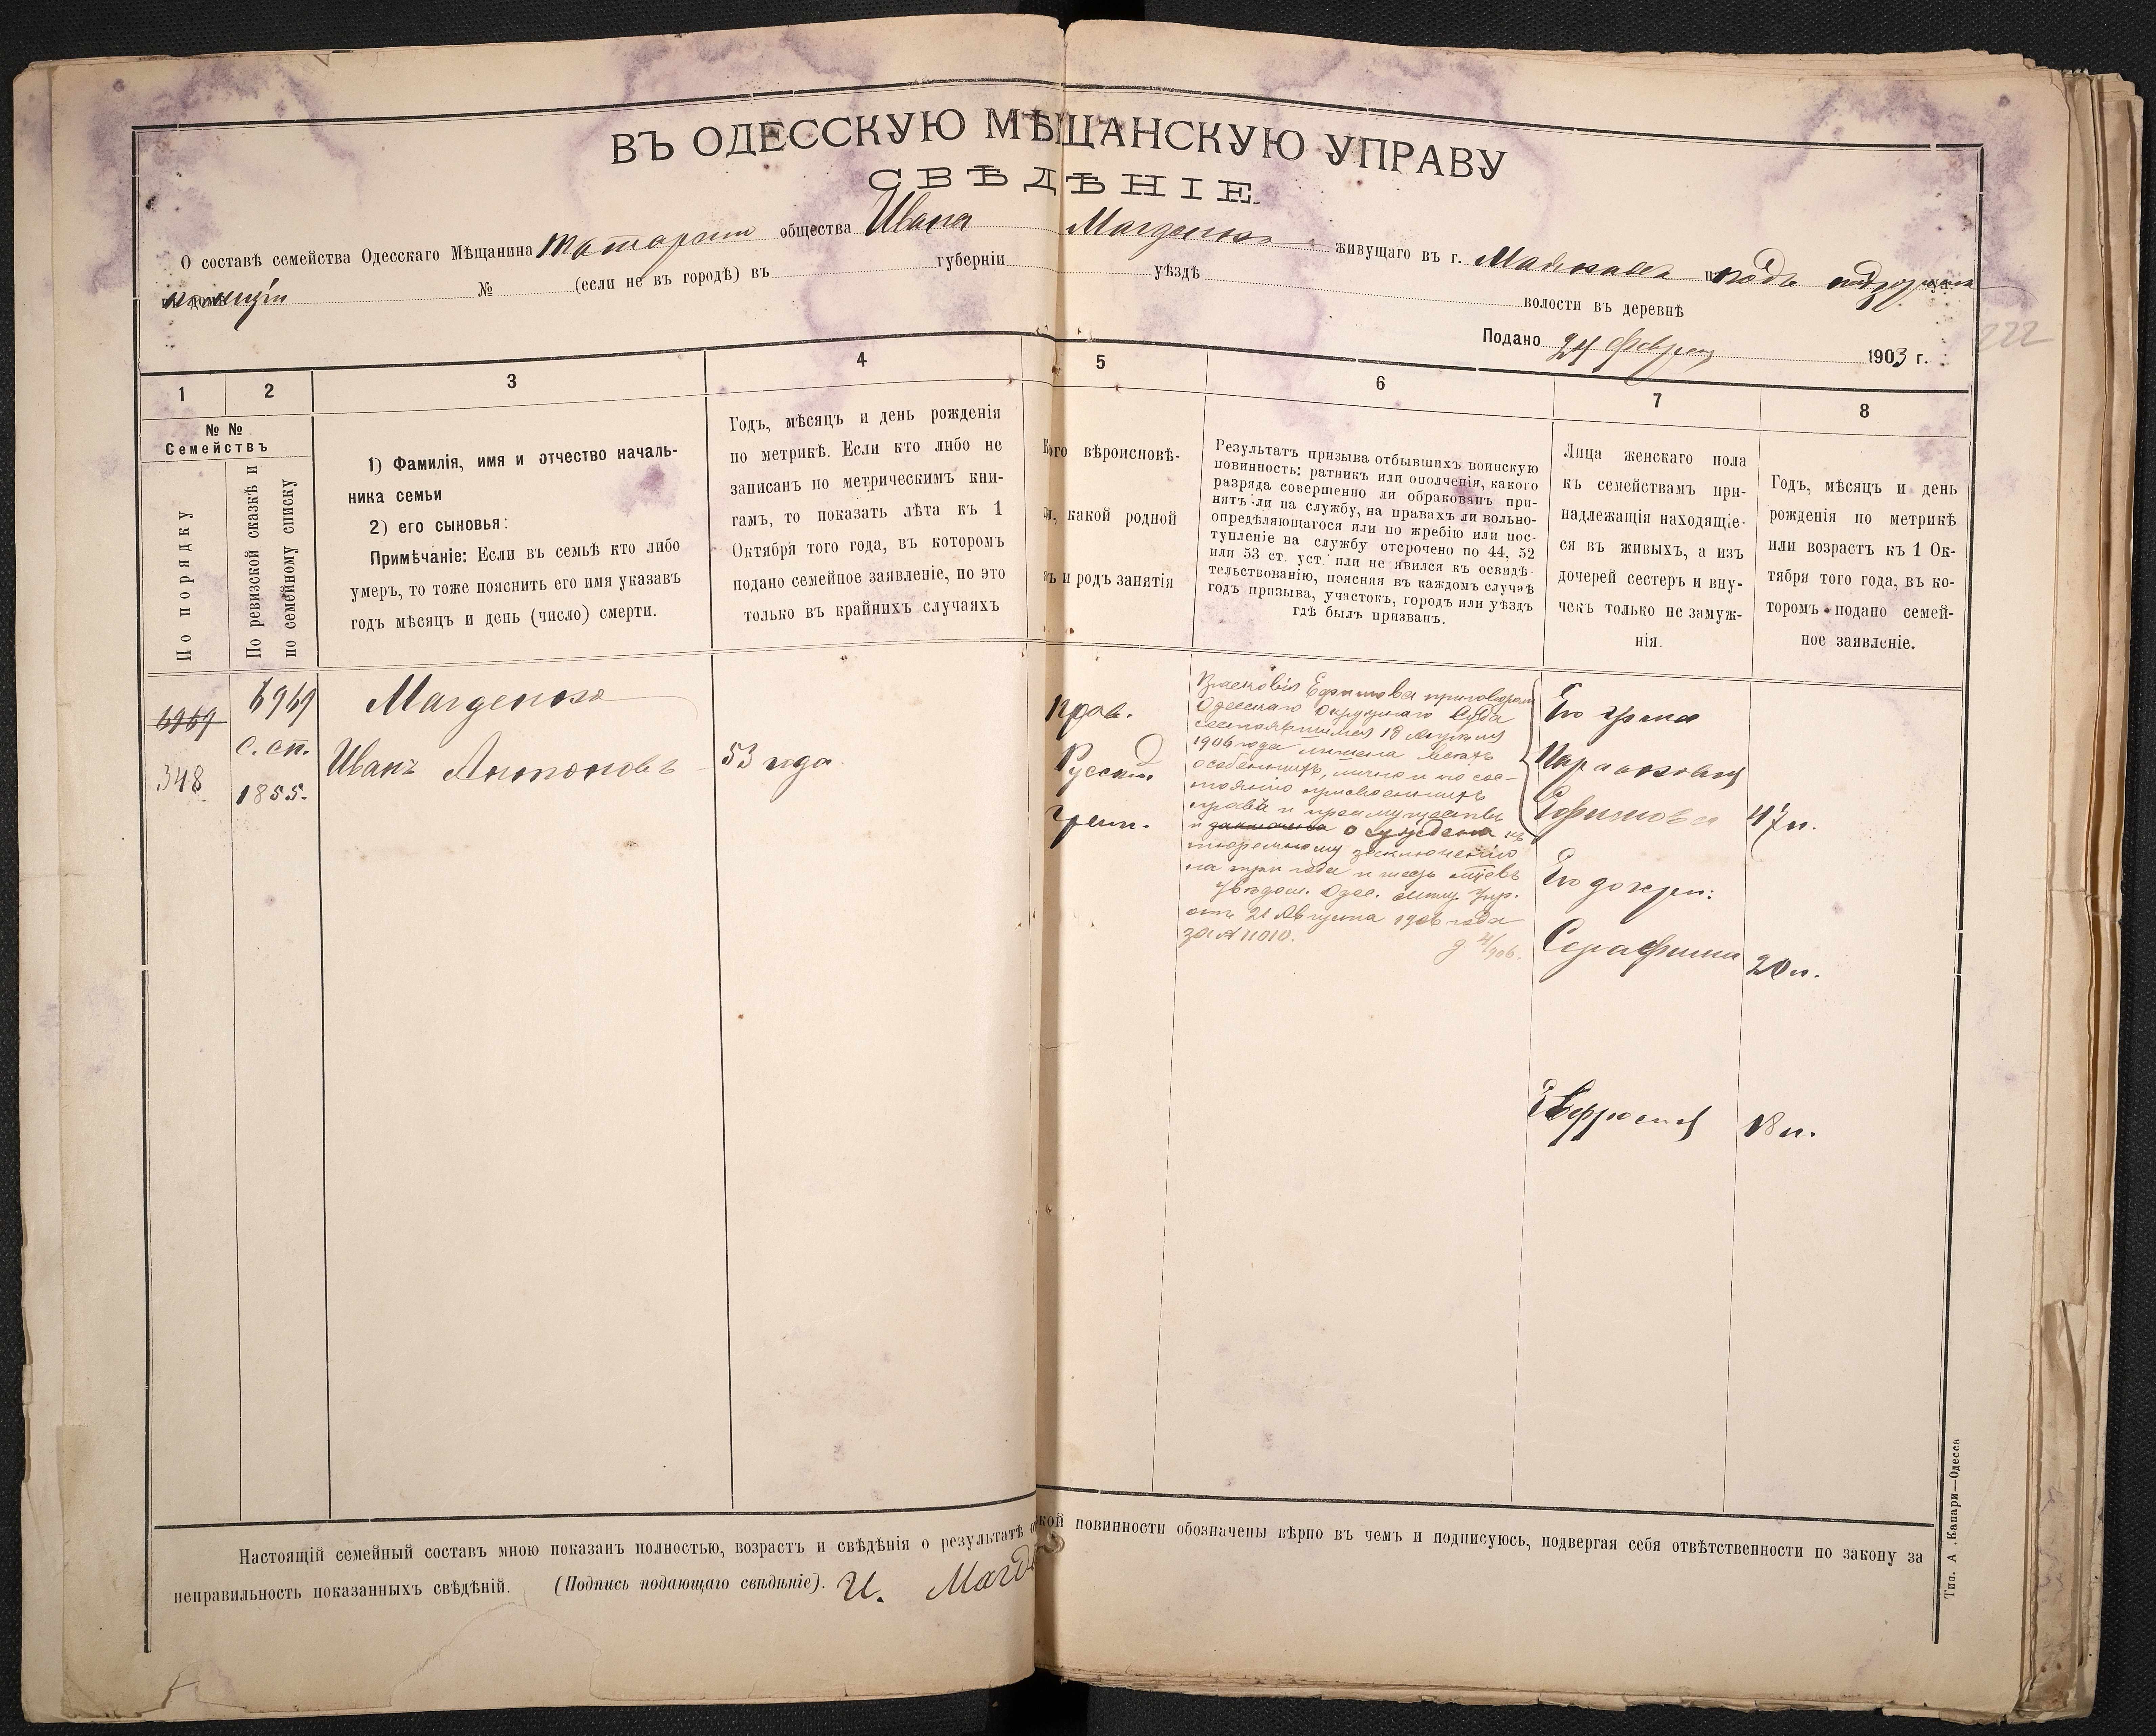 ВЪ ОДЕССКУЮ МѢЩАНСКУЮ УПРАВУ
СВѢДѢНІЕ
О составѣ семейства Одесскаго Мѣщанина общества Ивана Магденко живущаго въ г. подъ надзоромъ
полиціи № (если не въ городѣ) въ губерніи уѣздѣ
волости въ деревнѣ
Подано 24 Февраля 1903 г.
222
1 2 3 4 5 6 7 8
№ №
Семействъ
По порядку
По ревизской сказкѣ и
по семейному списку
1) Фамилія, имя и отчество началь-
ника семьи
2) его сыновья:
Примѣчаніе: Если въ семьѣ кто либо
умеръ, то тоже пояснить его имя указавъ
годъ мѣсяцъ и день (число) смерти.
Годъ, мѣсяцъ и день рожденія
по метрикѣ. Если кто либо не
записанъ по метрическимъ кни-
гамъ, то показать лѣта къ 1
Октября того года, въ которомъ
подано семейное заявленіе, но это
только въ крайнихъ случаяхъ
вѣроисповѣ-
какой родной
и родъ занятія
Результатъ призыва отбывшихъ воинскую
повинность: ратникъ или ополченія, какого
разряда совершенно ли обракованъ при-
нятъ ли на службу, на правахъ ли вольно-
опредѣляющагося или по жребію или пос-
тупленіе на службу отсрочено по 44, 52
или 53 ст. уст. или не явился къ освидѣ-
тельствованію, поясняя въ каждомъ случаѣ
годъ призыва, участокъ, городъ или уѣздъ
гдѣ былъ призванъ.
Лица женскаго пола
къ семействамъ при-
надлежащія находящіе-
ся въ живыхъ, а изъ
дочерей сестеръ и вну-
чекъ только не замуж-
нія.
Годъ, мѣсяцъ и день
рожденія по метрикѣ
или возрастъ къ 1 Ок-
тября того года, въ ко-
торомъ подано семей-
ное заявленіе.
6969
348
6969
с. сп.
1855.
Магденко
Иванъ Антоновъ
53 года.
прав.
Русскій
грам.
Ефимова приговоромъ
Одесскаго Окружнаго Суда
состоявшимся 18
1906 года лишена всѣхъ
особенныхъ, лично и по сос-
тоянію присвоенныхъ
правъ и преимуществъ
и осуждена къ
тюремному заключенію
на три года
Увѣдом. Одес. Мѣщ. Упр.
отъ 21 Августа 1906 года
за № 11010.
Его жена
Парасковія
Ефимова
47 л.
Его дочери:
Серафима
20 л.
Евфросинія
18 л.
Настоящій семейный составъ мною показанъ полностью, возрастъ и свѣдѣнія о результатѣ повинности обозначены вѣрно въ чемъ и подписуюсь, подвергая себя отвѣтственности по закону за
неправильность показанныхъ свѣдѣній. (Подпись подающаго свѣдѣніе). И. Магд
Тип. А. Капари—Одесса